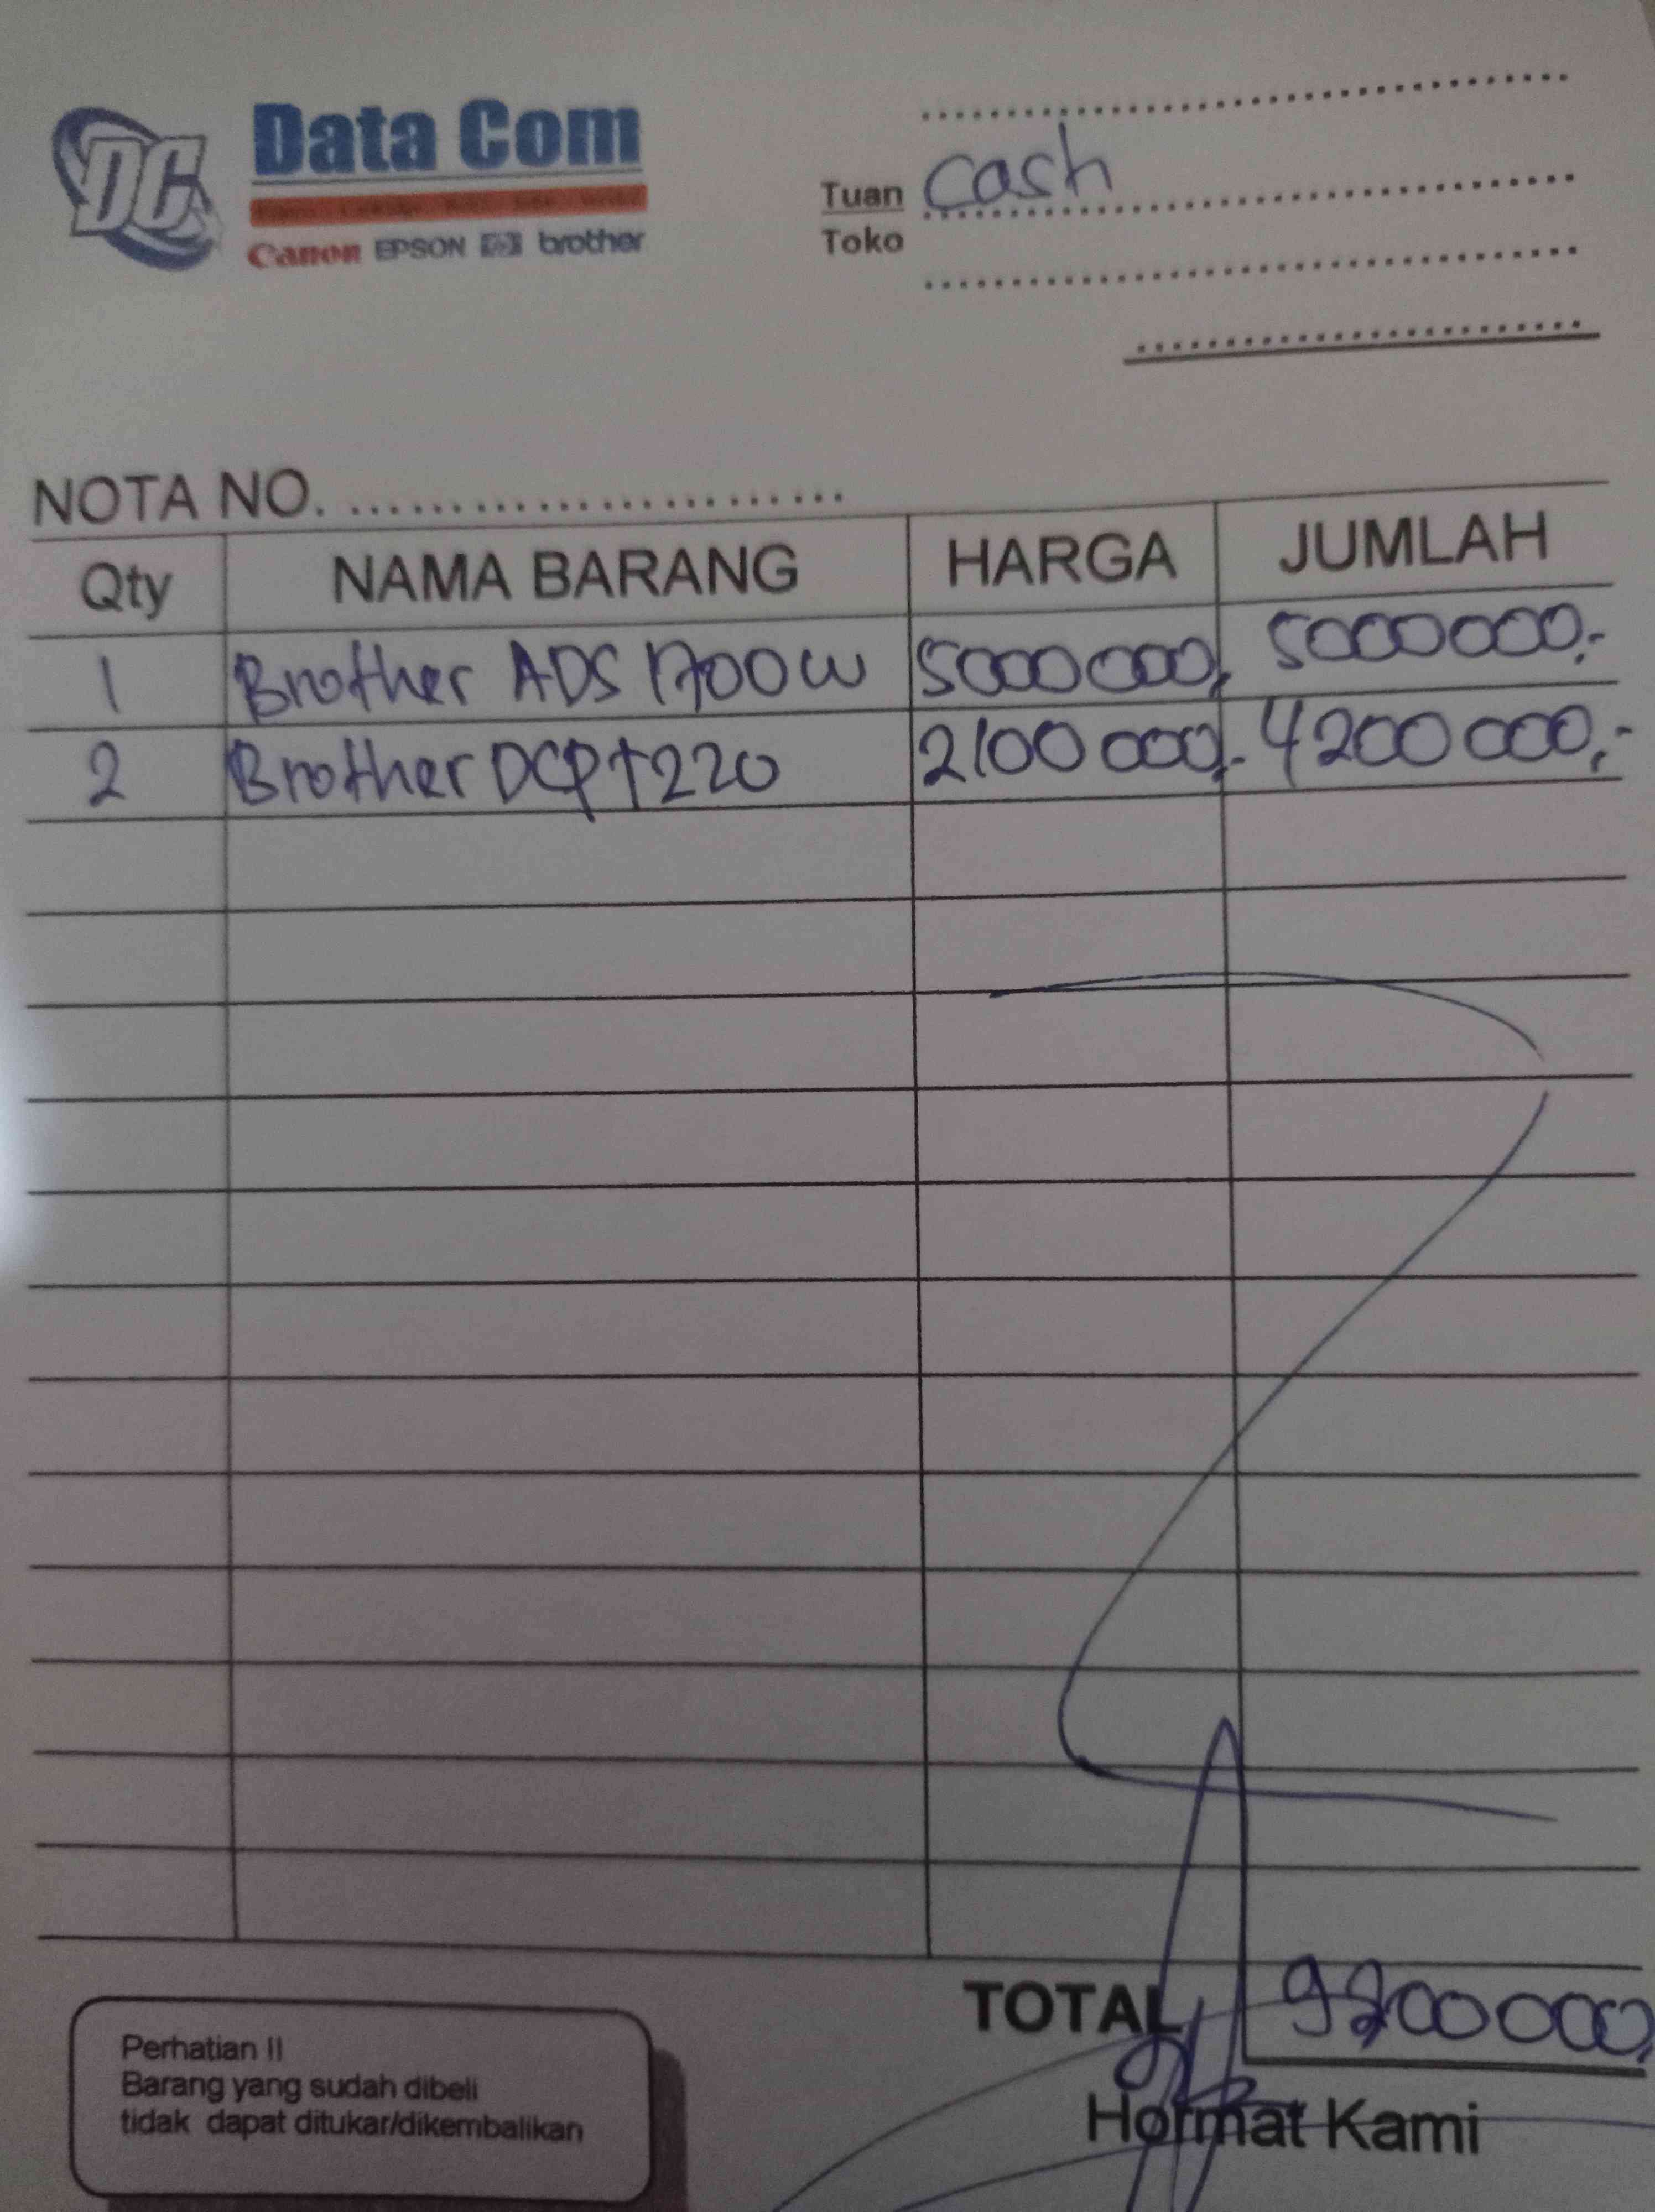 DC
Data Com
Canon EPSON hp brother
Tuan Cash
Toko
NOTA NO.
Qty NAMA BARANG HARGA JUMLAH
1 Brother ADS 1700W 5000000, 5000000,-
2 Brother DCP T220 2100000,- 4200000,-
TOTAL 9200000,
Perhatian !!
Barang yang sudah dibeli
tidak dapat ditukar/dikembalikan
Hormat Kami